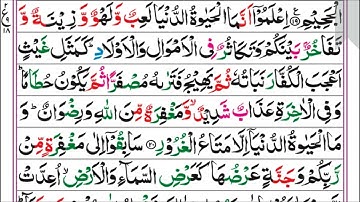 الْجَحِيْمِ ۝۱۹ اِعْلَمُوْۤا اَنَّمَا الْحَيٰوةُ الدُّنْيَا لَعِبٌ وَّلَهْوٌ وَّزِيْنَةٌ وَّ
تَفَاخُرٌۢ بَيْنَكُمْ وَتَكَاثُرٌ فِى الْاَمْوَالِ وَالْاَوْلَادِؕ كَمَثَلِ غَيْثٍ
اَعْجَبَ الْكُفَّارَ نَبَاتُهٗ ثُمَّ يَهِيْجُ فَتَرٰىهُ مُصْفَرًّا ثُمَّ يَكُوْنُ حُطَامًاؕ
وَفِى الْاٰخِرَةِ عَذَابٌ شَدِيْدٌۙ وَّمَغْفِرَةٌ مِّنَ اللّٰهِ وَرِضْوَانٌؕ وَ
مَا الْحَيٰوةُ الدُّنْيَاۤ اِلَّا مَتَاعُ الْغُرُوْرِ ۝۲۰ سَابِقُوْۤا اِلٰى مَغْفِرَةٍ مِّنْ
رَّبِّكُمْ وَجَنَّةٍ عَرْضُهَا كَعَرْضِ السَّمَآءِ وَالْاَرْضِۙ اُعِدَّتْ